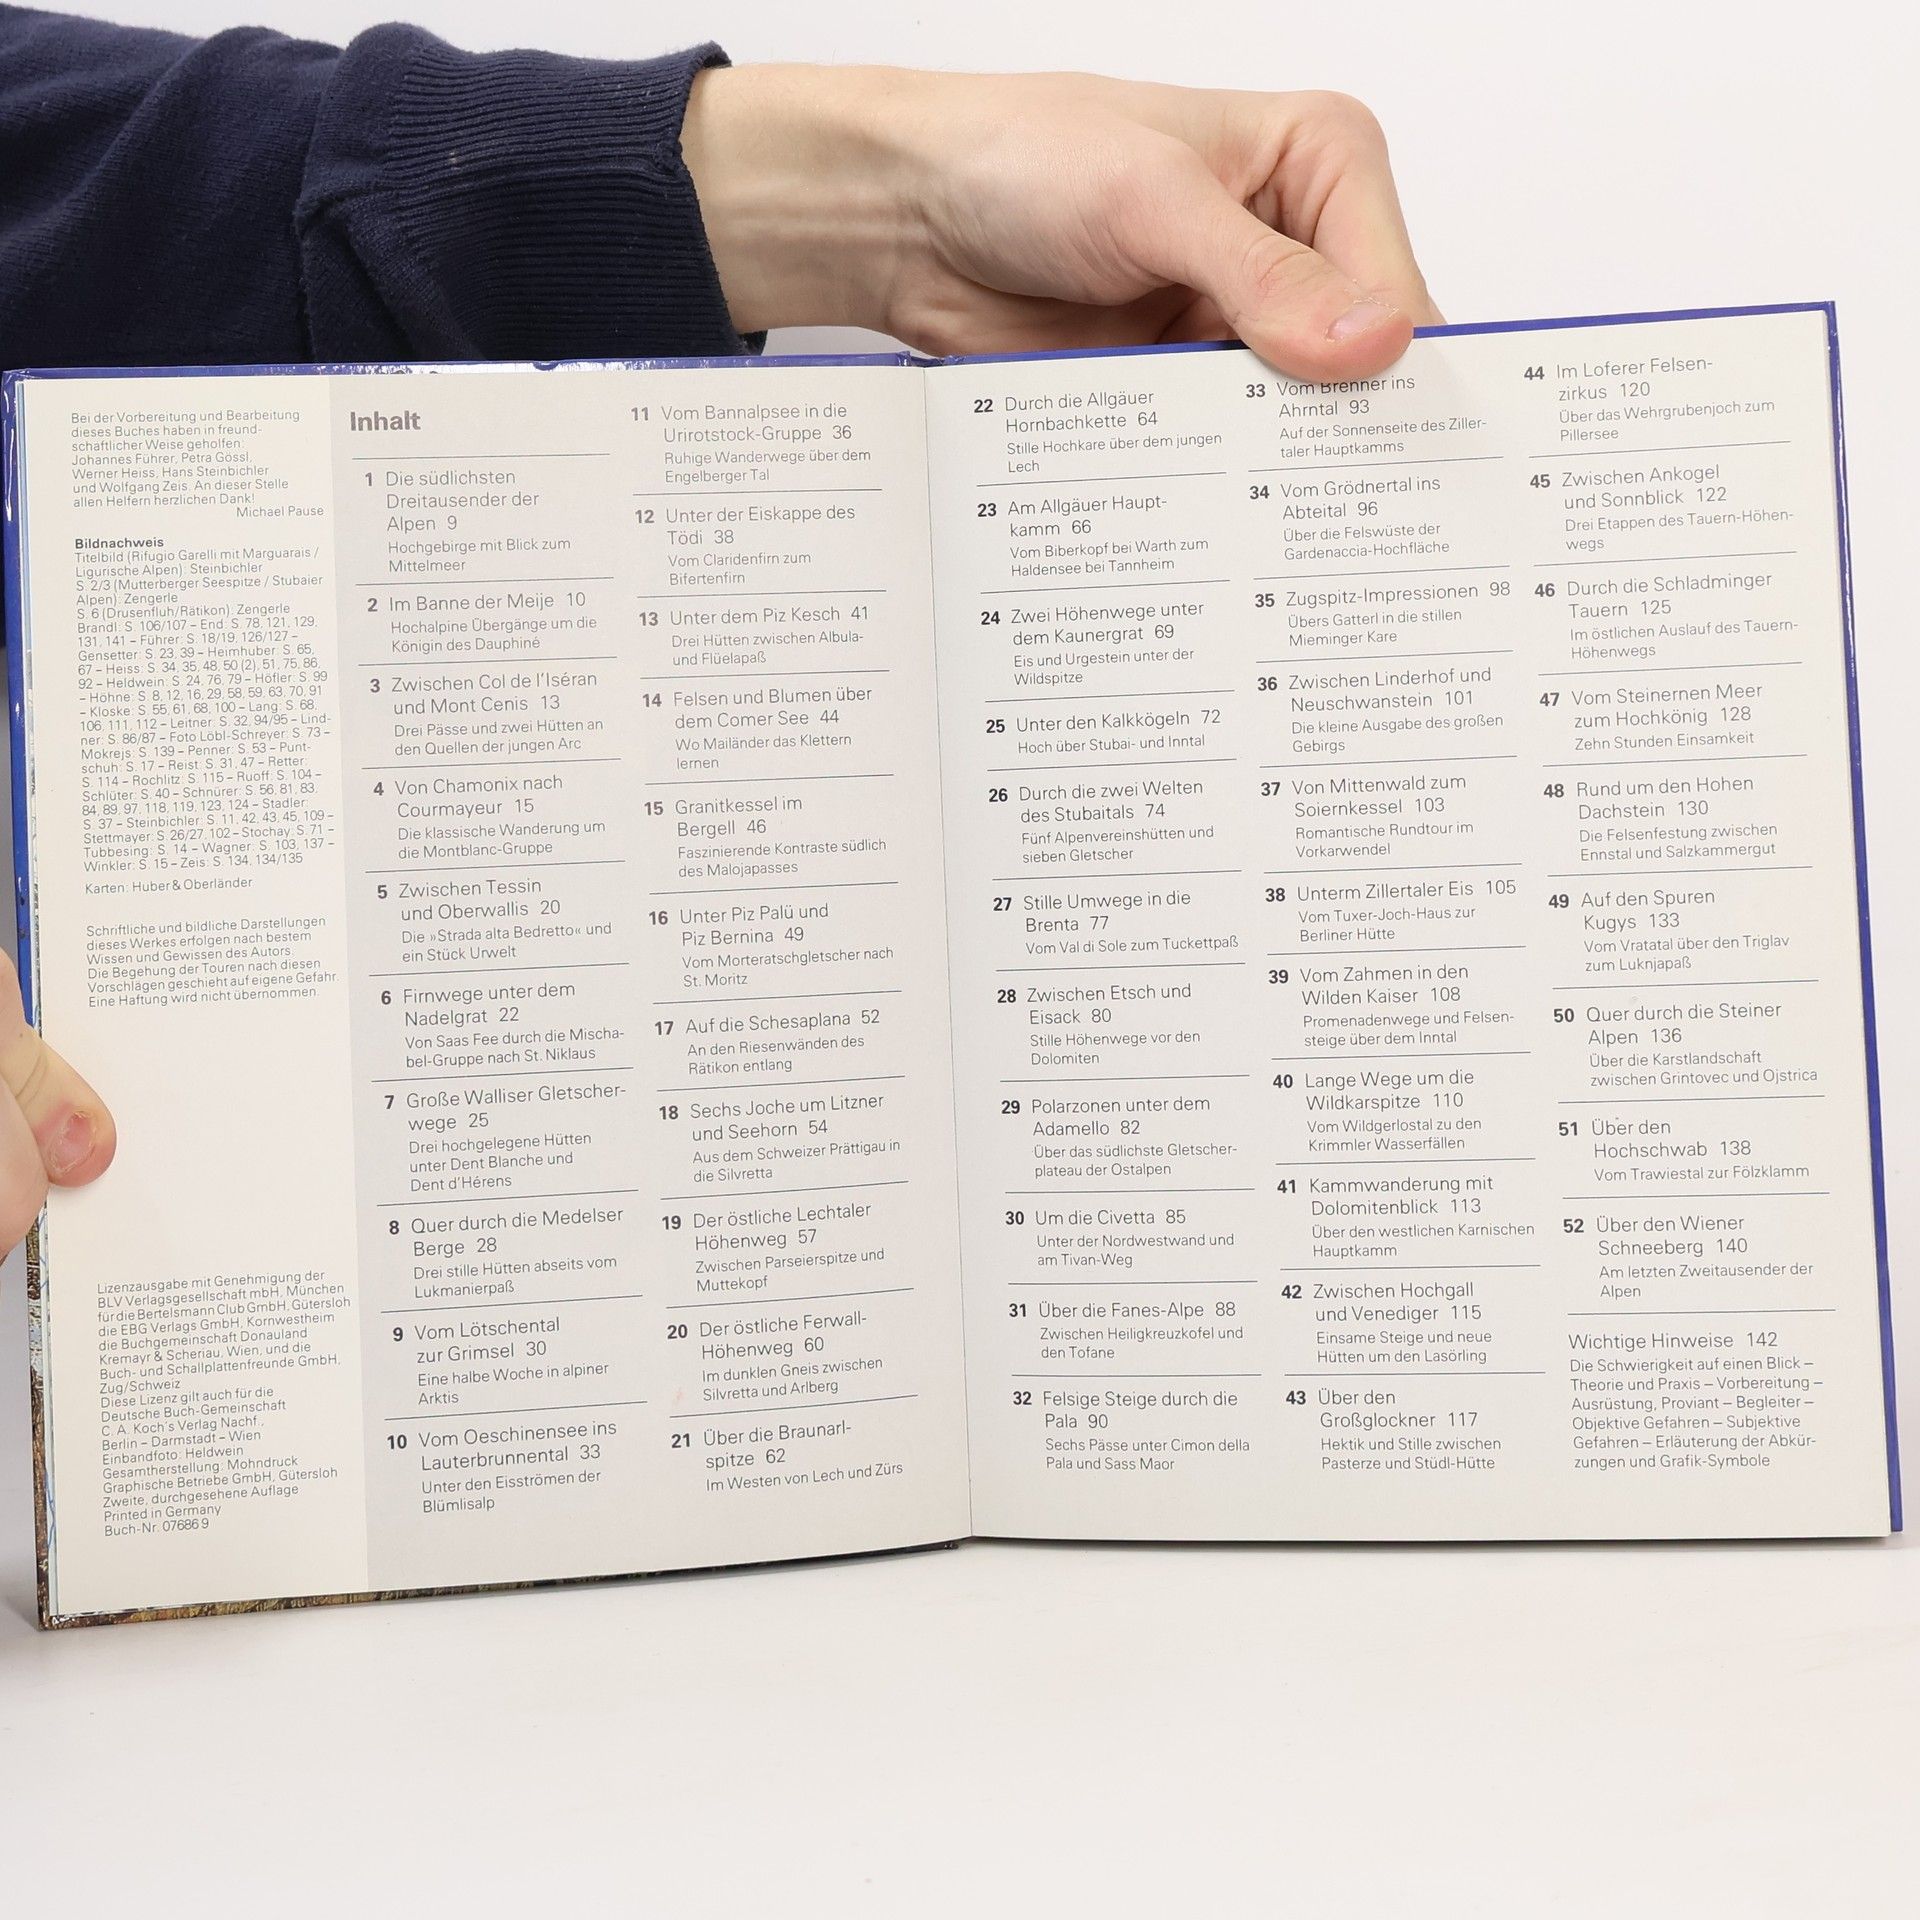 Bei der Vorbereitung und Bearbeitung
dieses Buches haben in freund-
schaftlicher Weise geholfen:
Johannes Führer, Petra Gössl,
Werner Heiss, Hans Steinbichler
und Wolfgang Zeis. An dieser Stelle
allen Helfern herzlichen Dank!
Michael Pause
Bildnachweis
Titelbild (Rifugio Garelli mit Marguarais /
Ligurische Alpen): Steinbichler
S. 2/3 (Mutterberger Seespitze / Stubaier
Alpen): Zengerle
S. 6 (Drusenfluh/Rätikon): Zengerle
Brandl: S. 106/107 – End: S. 78, 121, 129,
131, 141 – Führer: S. 18/19, 126/127 –
Gensetter: S. 23, 39 – Heimhuber: S. 65,
67 – Heiss: S. 34, 35, 48, 50 (2), 51, 75, 86,
92 – Heldwein: S. 24, 76, 79 – Höfler: S. 99
– Höhne: S. 8, 12, 16, 29, 58, 59, 63, 70, 91
– Kloske: S. 55, 61, 68, 100 – Lang: S. 68,
106, 111, 112 – Leitner: S. 32, 94/95 – Lind-
ner: S. 86/87 – Foto Löbl-Schreyer: S. 73 –
Mokrejs: S. 139 – Penner: S. 53 – Punt-
schuh: S. 17 – Reist: S. 31, 47 – Retter:
S. 114 – Rochlitz: S. 115 – Ruoff: S. 104 –
Schlüter: S. 40 – Schnürer: S. 56, 81, 83,
84, 89, 97, 118, 119, 123, 124 – Stadler:
S. 37 – Steinbichler: S. 11, 42, 43, 45, 109 –
Stettmayer: S. 26/27, 102 – Stochay: S. 71 –
Tubbesing: S. 14 – Wagner: S. 103, 137 –
Winkler: S. 15 – Zeis: S. 134, 134/135
Karten: Huber & Oberländer
Schriftliche und bildliche Darstellungen
dieses Werkes erfolgen nach bestem
Wissen und Gewissen des Autors.
Die Begehung der Touren nach diesen
Vorschlägen geschieht auf eigene Gefahr.
Eine Haftung wird nicht übernommen.
Lizenzausgabe mit Genehmigung der
BLV Verlagsgesellschaft mbH, München
für die Bertelsmann Club GmbH, Gütersloh
die EBG Verlags GmbH, Kornwestheim
die Buchgemeinschaft Donauland
Kremayr & Scheriau, Wien, und die
Buch- und Schallplattenfreunde GmbH,
Zug/Schweiz
Diese Lizenz gilt auch für die
Deutsche Buch-Gemeinschaft
C. A. Koch's Verlag Nachf.,
Berlin – Darmstadt – Wien
Einbandfoto: Heldwein
Gesamtherstellung: Mohndruck
Graphische Betriebe GmbH, Gütersloh
Zweite, durchgesehene Auflage
Printed in Germany
Buch-Nr. 07686 9
Inhalt
1 Die südlichsten
Dreitausender der
Alpen 9
Hochgebirge mit Blick zum
Mittelmeer
2 Im Banne der Meije 10
Hochalpine Übergänge um die
Königin des Dauphiné
3 Zwischen Col de l'Iséran
und Mont Cenis 13
Drei Pässe und zwei Hütten an
den Quellen der jungen Arc
4 Von Chamonix nach
Courmayeur 15
Die klassische Wanderung um
die Montblanc-Gruppe
5 Zwischen Tessin
und Oberwallis 20
Die »Strada alta Bedretto« und
ein Stück Urwelt
6 Firnwege unter dem
Nadelgrat 22
Von Saas Fee durch die Mischa-
bel-Gruppe nach St. Niklaus
7 Große Walliser Gletscher-
wege 25
Drei hochgelegene Hütten
unter Dent Blanche und
Dent d'Hérens
8 Quer durch die Medelser
Berge 28
Drei stille Hütten abseits vom
Lukmanierpaß
9 Vom Lötschental
zur Grimsel 30
Eine halbe Woche in alpiner
Arktis
10 Vom Oeschinensee ins
Lauterbrunnental 33
Unter den Eisströmen der
Blümlisalp
11 Vom Bannalpsee in die
Urirotstock-Gruppe 36
Ruhige Wanderwege über dem
Engelberger Tal
12 Unter der Eiskappe des
Tödi 38
Vom Claridenfirn zum
Bifertenfirn
13 Unter dem Piz Kesch 41
Drei Hütten zwischen Albula-
und Flüelapaß
14 Felsen und Blumen über
dem Comer See 44
Wo Mailänder das Klettern
lernen
15 Granitkessel im
Bergell 46
Faszinierende Kontraste südlich
des Malojapasses
16 Unter Piz Palü und
Piz Bernina 49
Vom Morteratschgletscher nach
St. Moritz
17 Auf die Schesaplana 52
An den Riesenwänden des
Rätikon entlang
18 Sechs Joche um Litzner
und Seehorn 54
Aus dem Schweizer Prättigau in
die Silvretta
19 Der östliche Lechtaler
Höhenweg 57
Zwischen Parseierspitze und
Muttekopf
20 Der östliche Ferwall-
Höhenweg 60
Im dunklen Gneis zwischen
Silvretta und Arlberg
21 Über die Braunarl-
spitze 62
Im Westen von Lech und Zürs
22 Durch die Allgäuer
Hornbachkette 64
Stille Hochkare über dem jungen
Lech
23 Am Allgäuer Haupt-
kamm 66
Vom Biberkopf bei Warth zum
Haldensee bei Tannheim
24 Zwei Höhenwege unter
dem Kaunergrat 69
Eis und Urgestein unter der
Wildspitze
25 Unter den Kalkkögeln 72
Hoch über Stubai- und Inntal
26 Durch die zwei Welten
des Stubaitals 74
Fünf Alpenvereinshütten und
sieben Gletscher
27 Stille Umwege in die
Brenta 77
Vom Val di Sole zum Tuckettpaß
28 Zwischen Etsch und
Eisack 80
Stille Höhenwege vor den
Dolomiten
29 Polarzonen unter dem
Adamello 82
Über das südlichste Gletscher-
plateau der Ostalpen
30 Um die Civetta 85
Unter der Nordwestwand und
am Tivan-Weg
31 Über die Fanes-Alpe 88
Zwischen Heiligkreuzkofel und
den Tofane
32 Felsige Steige durch die
Pala 90
Sechs Pässe unter Cimon della
Pala und Sass Maor
33 Vom Brenner ins
Ahrntal 93
Auf der Sonnenseite des Ziller-
taler Hauptkamms
34 Vom Grödnertal ins
Abteital 96
Über die Felswüste der
Gardenaccia-Hochfläche
35 Zugspitz-Impressionen 98
Übers Gatterl in die stillen
Mieminger Kare
36 Zwischen Linderhof und
Neuschwanstein 101
Die kleine Ausgabe des großen
Gebirgs
37 Von Mittenwald zum
Soiernkessel 103
Romantische Rundtour im
Vorkarwendel
38 Unterm Zillertaler Eis 105
Vom Tuxer-Joch-Haus zur
Berliner Hütte
39 Vom Zahmen in den
Wilden Kaiser 108
Promenadenwege und Felsen-
steige über dem Inntal
40 Lange Wege um die
Wildkarspitze 110
Vom Wildgerlostal zu den
Krimmler Wasserfällen
41 Kammwanderung mit
Dolomitenblick 113
Über den westlichen Karnischen
Hauptkamm
42 Zwischen Hochgall
und Venediger 115
Einsame Steige und neue
Hütten um den Lasörling
43 Über den
Großglockner 117
Hektik und Stille zwischen
Pasterze und Stüdl-Hütte
44 Im Loferer Felsen-
zirkus 120
Über das Wehrgrubenjoch zum
Pillersee
45 Zwischen Ankogel
und Sonnblick 122
Drei Etappen des Tauern-Höhen-
wegs
46 Durch die Schladminger
Tauern 125
Im östlichen Auslauf des Tauern-
Höhenwegs
47 Vom Steinernen Meer
zum Hochkönig 128
Zehn Stunden Einsamkeit
48 Rund um den Hohen
Dachstein 130
Die Felsenfestung zwischen
Ennstal und Salzkammergut
49 Auf den Spuren
Kugys 133
Vom Vratatal über den Triglav
zum Luknjapaß
50 Quer durch die Steiner
Alpen 136
Über die Karstlandschaft
zwischen Grintovec und Ojstrica
51 Über den
Hochschwab 138
Vom Trawiestal zur Fölzklamm
52 Über den Wiener
Schneeberg 140
Am letzten Zweitausender der
Alpen
Wichtige Hinweise 142
Die Schwierigkeit auf einen Blick –
Theorie und Praxis – Vorbereitung –
Ausrüstung, Proviant – Begleiter –
Objektive Gefahren – Subjektive
Gefahren – Erläuterung der Abkür-
zungen und Grafik-Symbole